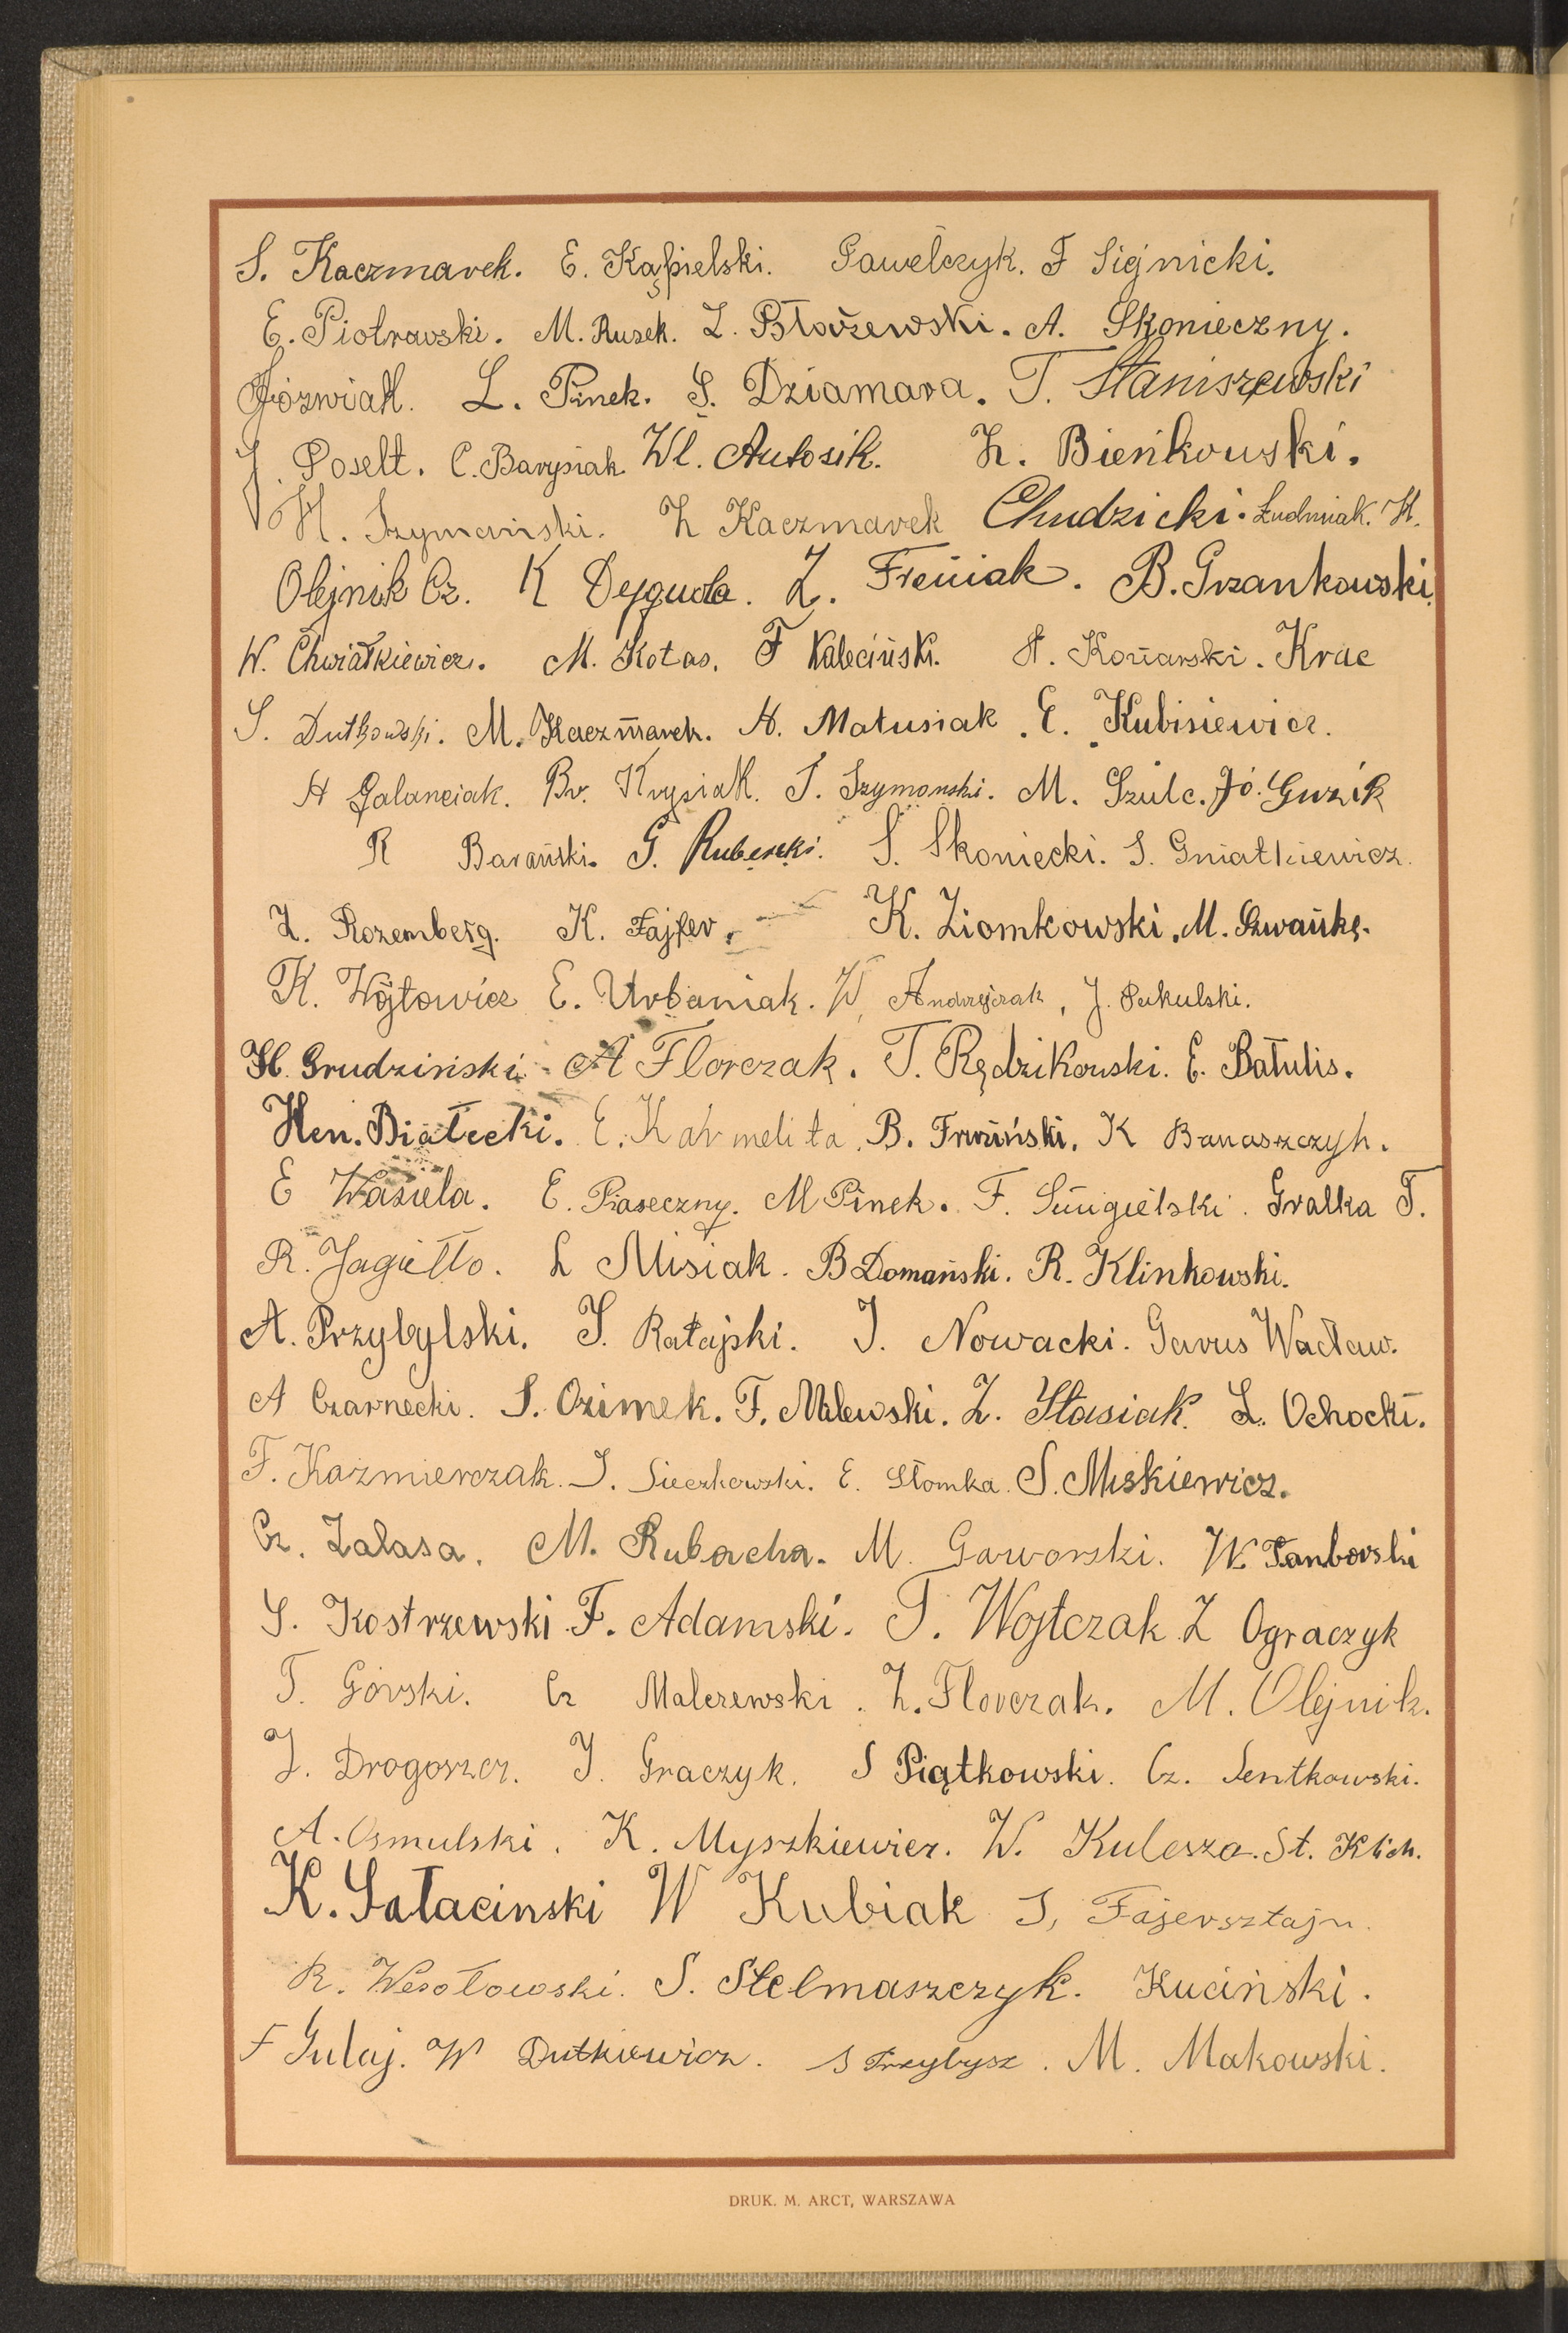 S. Kaczmarek. E. Kąpielski. Pawelczyk. F Siejnicki.
E. Piotrowski. M. Rusek. Z. Błoszewski. A. Skonieczny.
Jóźwiak. L. Pinek. S. Dziamara. T. Staniszewski
J. Poselt. C. Barysiak Wl. Antosik. Z. Bieńkowski.
H. Szymański. Z Kaczmarek Chudzicki. Ludwiak. H.
Olejnik Cz. K Z. Freniak. B. Grzankowski
W. Chwiałkiewicz. M. Kotas. F Kaleciński. H. Konarski. Krac
S. Dutkowski. M. Kaczmarek. H. Matusiak. E. Kubisiewicz.
H Galanciak. Br. Krysiak. T. Szymonski. M. Szulc. Jó. Guzik
R Barański. G. S. Skoniecki. S. Gniatkiewicz.
Z. Rozemberg. K. Fajfer. K. Ziomkowski. M. Szwankę.
K. Wójtowicz E. Urbaniak. W. Andrzejczak, J. Pukulski.
H. Grudziński. A Florczak. T. Rędzikowski. E. Batulis.
Hen. Białecki. E. Karmelita. B. K Banaszczyk.
E Wasiela. E. Piaseczny. M Pinek. F. Śmigielski. Gralka T.
R. Jagiełło. L Misiak. B Domański. R. Klinkowski.
A. Przybylski. J. Ratajski. J. Nowacki. Garus Wacław.
A Czarnecki. S. Ozimek. F. Milewski. Z. Stasiak. L. Ochocki.
F. Kaźmierczak. J. Sieczkowski. E. Słomka. S. Miśkiewicz.
Cz. Zalasa. M. Rubacha. M. Gaworski. W. Tamborski
S. Kostrzewski. F. Adamski. T. Wojtczak. Z Ograczyk
T. Górski. Cz Malczewski. Z. Florczak. M. Olejnik.
J. Drogoszcz. J. Graczyk. S Piątkowski. Cz. Sentkowski.
A. Osmulski. K. Myszkiewicz. W. Kulesza. St. Klich.
K. Sałacinski W Kubiak J, Fajersztajn.
R. Wesołowski. S. Stelmaszczyk. Kuciński.
F Gulaj. W Dutkiewicz. S Przybysz. M. Makowski.
DRUK. M. ARCT, WARSZAWA